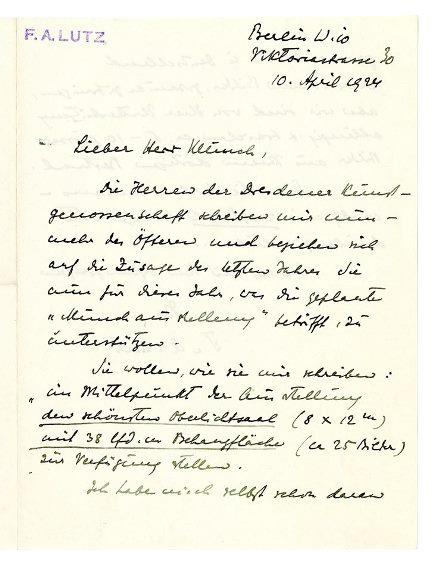 F.A.LUTZ
Berlin W.10
Viktoriastrasse 30
10. April 1924
Lieber Herr Munch,
Die Herren der Dresdener Kunst-
genossenschaft schreiben mir nun-
mehr des Öfteren und beziehen sich
auf die Zusage des letzten Jahres sie
nun für dieses Jahr, was die geplante
„Munchausstellung" betrifft, zu
unterstützen.
Sie wollen, wie sie mir schreiben:
„im Mittelpunkt der Ausstellung
den schönsten Oberlichtsaal (8 x 12 m)
mit 38 lfd. m Behangfläche (ca 25 Bilder)
zur Verfügung stellen.
Ich habe mich selbst schon daran